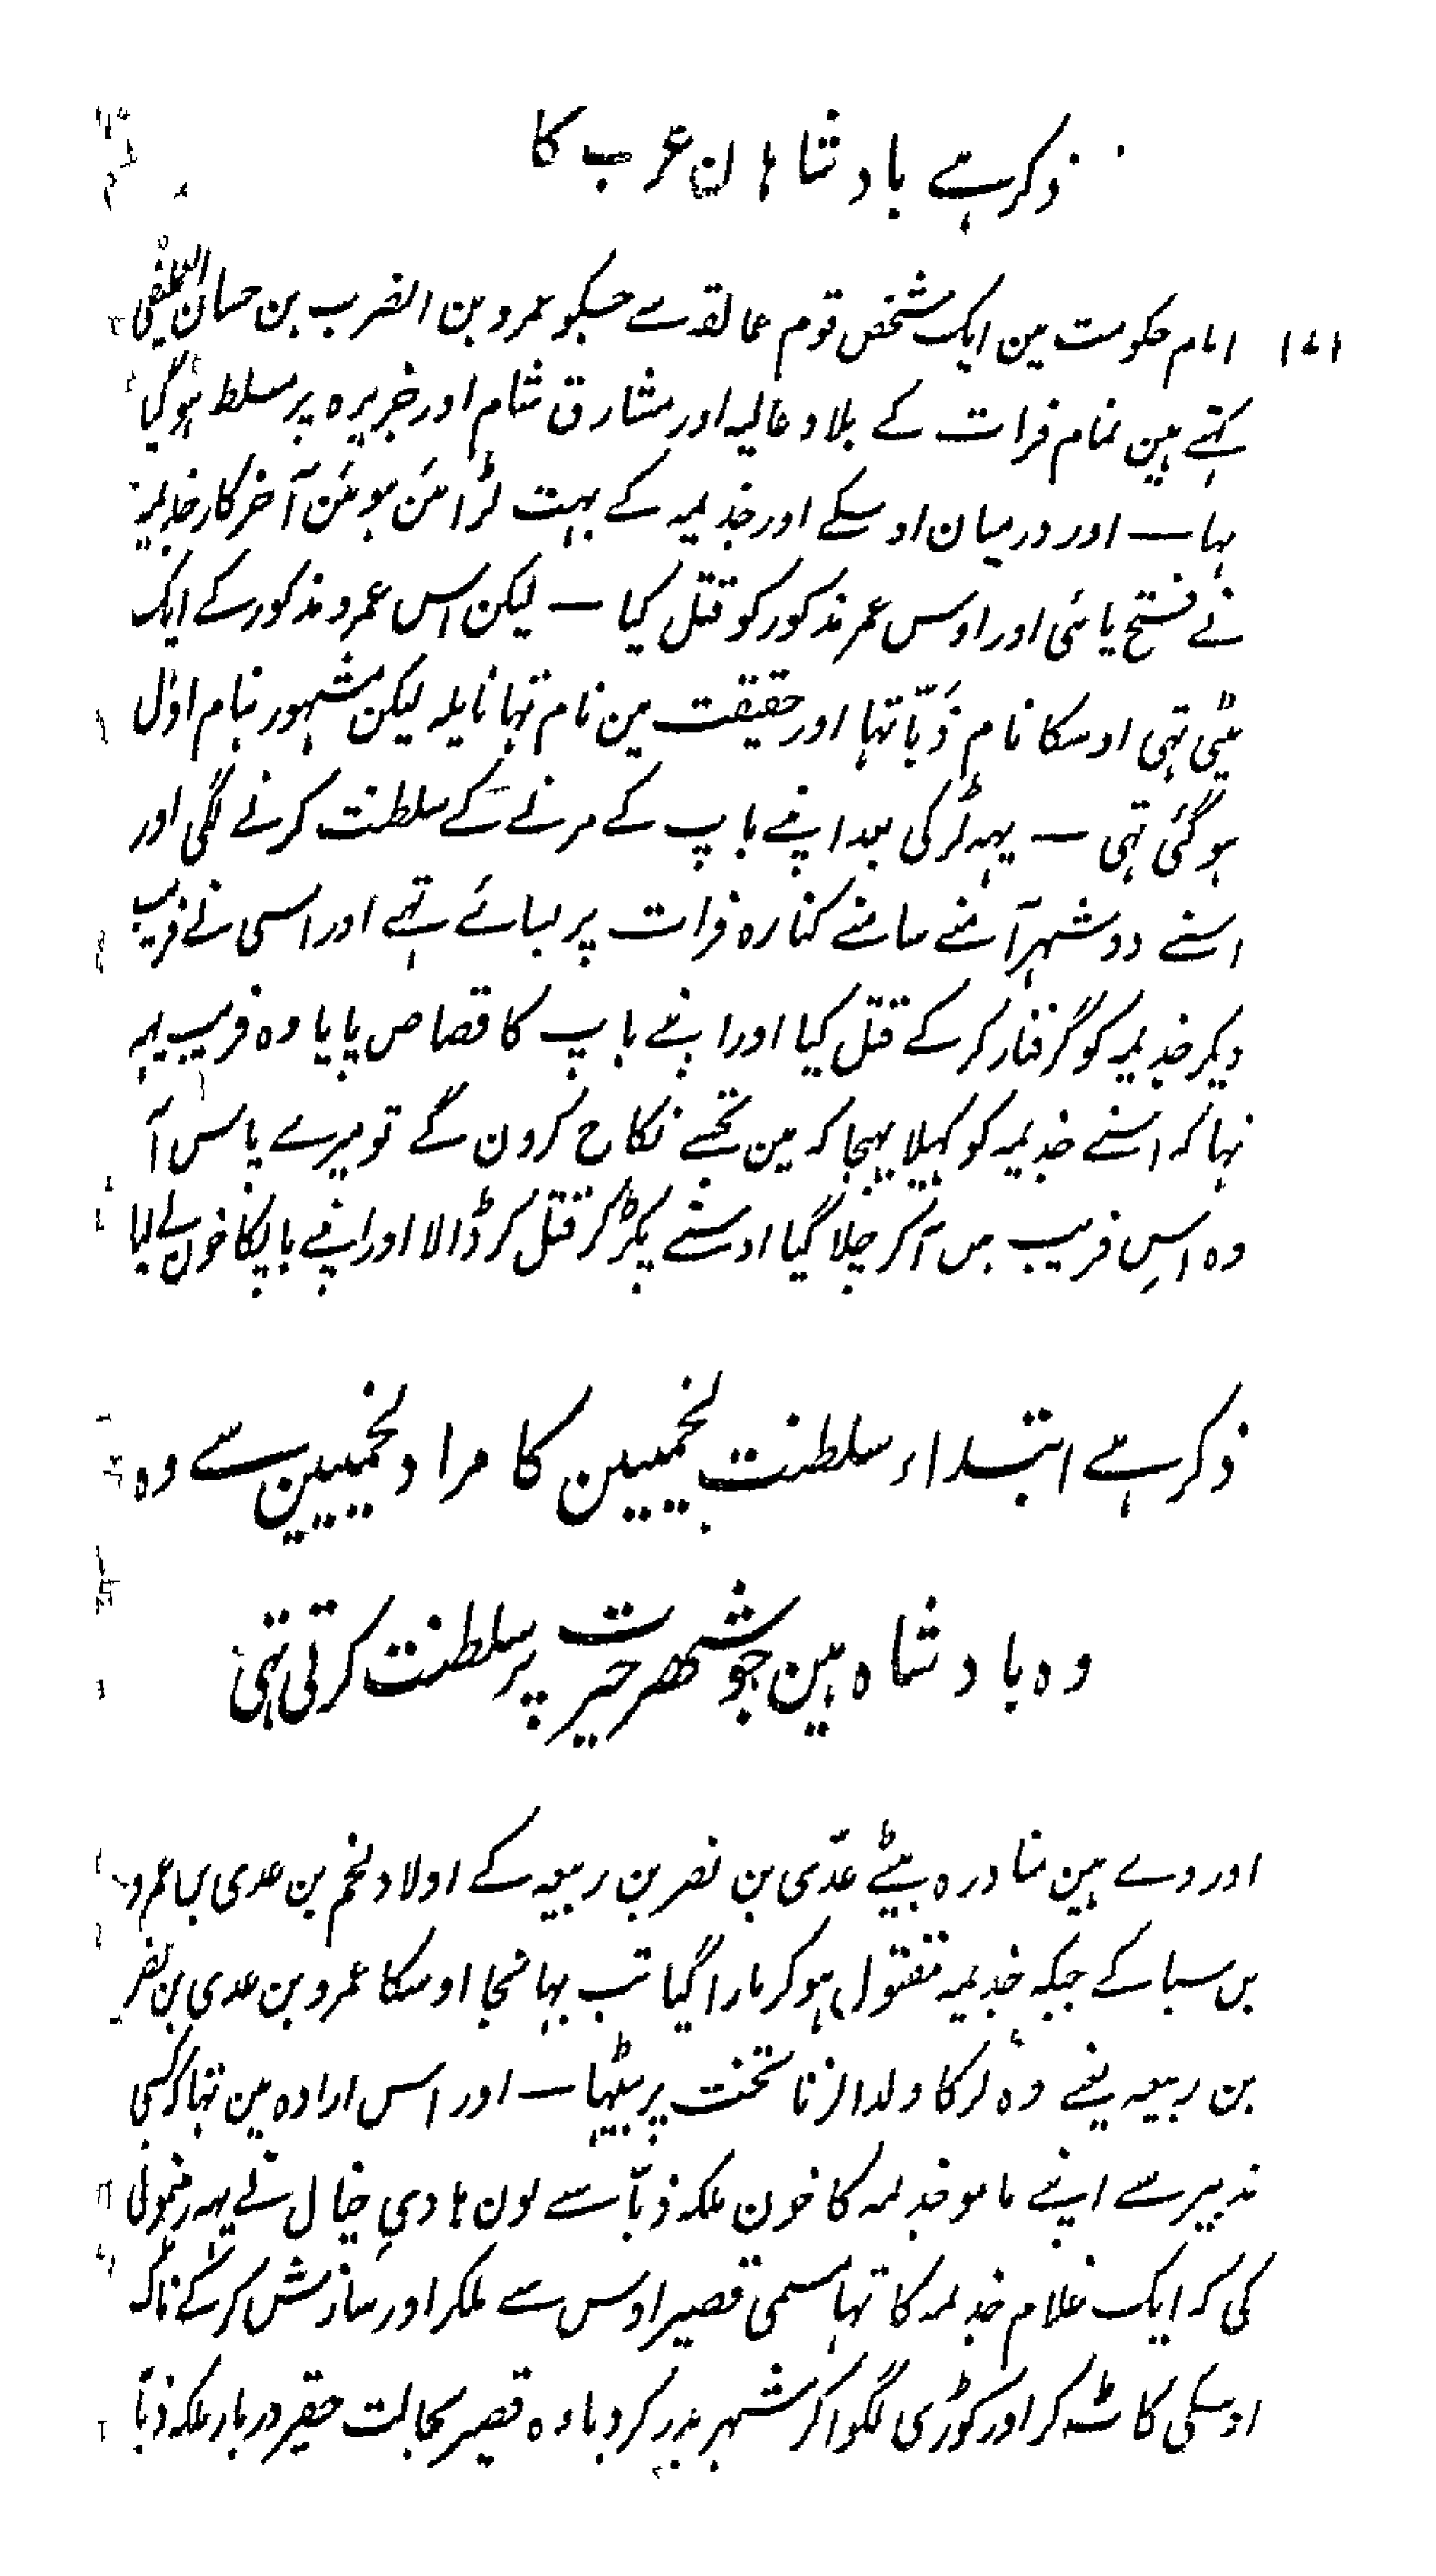 ذکر ہے بادشاہان عرب کا
۱۷۱ ایام حکومت مین ایک شخص قوم عمالقہ سے جسکو عمرو بن الضرب بن حسان العملیقی
کہتے ہین تمام فرات کے بلاد عالیہ اور مشارق شام اور جزیرہ پر مسلط ہو گیا
تہا — اور درمیان اوسکے اور جذیمہ کے بہت لڑائین ہوئین آخر کار جذیمہ
نے فتح پائی اور اوس عمر مذکور کو قتل کیا — لیکن اس عمرو مذکور کے ایک
بیٹی تہی اوسکا نام زبّا تہا اور حقیقت مین نام تہا نایلہ لیکن مشہور بنام اول
ہو گئی تہی — یہہ لڑکی بعد اپنے باپ کے مرنے کے سلطنت کرنے لگی اور
اسنے دو شہر آمنے سامنے کنارہ فرات پر بسائے تہے اور اسی نے فریب
دیکر جذیمہ کو گرفتار کر کے قتل کیا اور اپنے باپ کا قصاص پایا وہ فریب یہہ
تہا کہ اسنے جذیمہ کو کہلا بہیجا کہ مین تجہسے نکاح کرون گے تو میرے پاس آ
وہ اس فریب مں آکر چلا گیا اوسنے پکڑ کر قتل کر ڈالا اور اپنے باپکا خون لے لیا
ذکر ہے ابتداء سلطنت لخمیین کا مراد لخمیین سے وہ
وہ بادشاہ ہین جو شہر حیرت پر سلطنت کرتی تہی
اور وے ہین منادرہ بیٹے عدّی بن نصر بن ربیعہ کے اولاد لخم بن عدی بن عمرو
بن سبا کے جبکہ جذیمہ مقتول ہو کر مارا گیا تب بہانجا اوسکا عمرو بن عدی بن نصر
بن ربیعہ یعنے وہ لڑکا ولد الزنا تخت پر بیٹہا — اور اس ارادہ مین تہا کہ کسی
تدبیر سے اپنے مامو جذیمہ کا خون ملکہ زبّا سے لون ہادی خیال نے یہہ رہنمونی
کی کہ ایک غلام جذیمہ کا تہا مسمی قصیر اوس سے ملکر اور سازش کر کے ناک
اوسکی کاٹ کر اور کوڑی لگوا کر شہر بدر کر دیا وہ قصیر بحالت حقیر دربار ملکہ زبّا